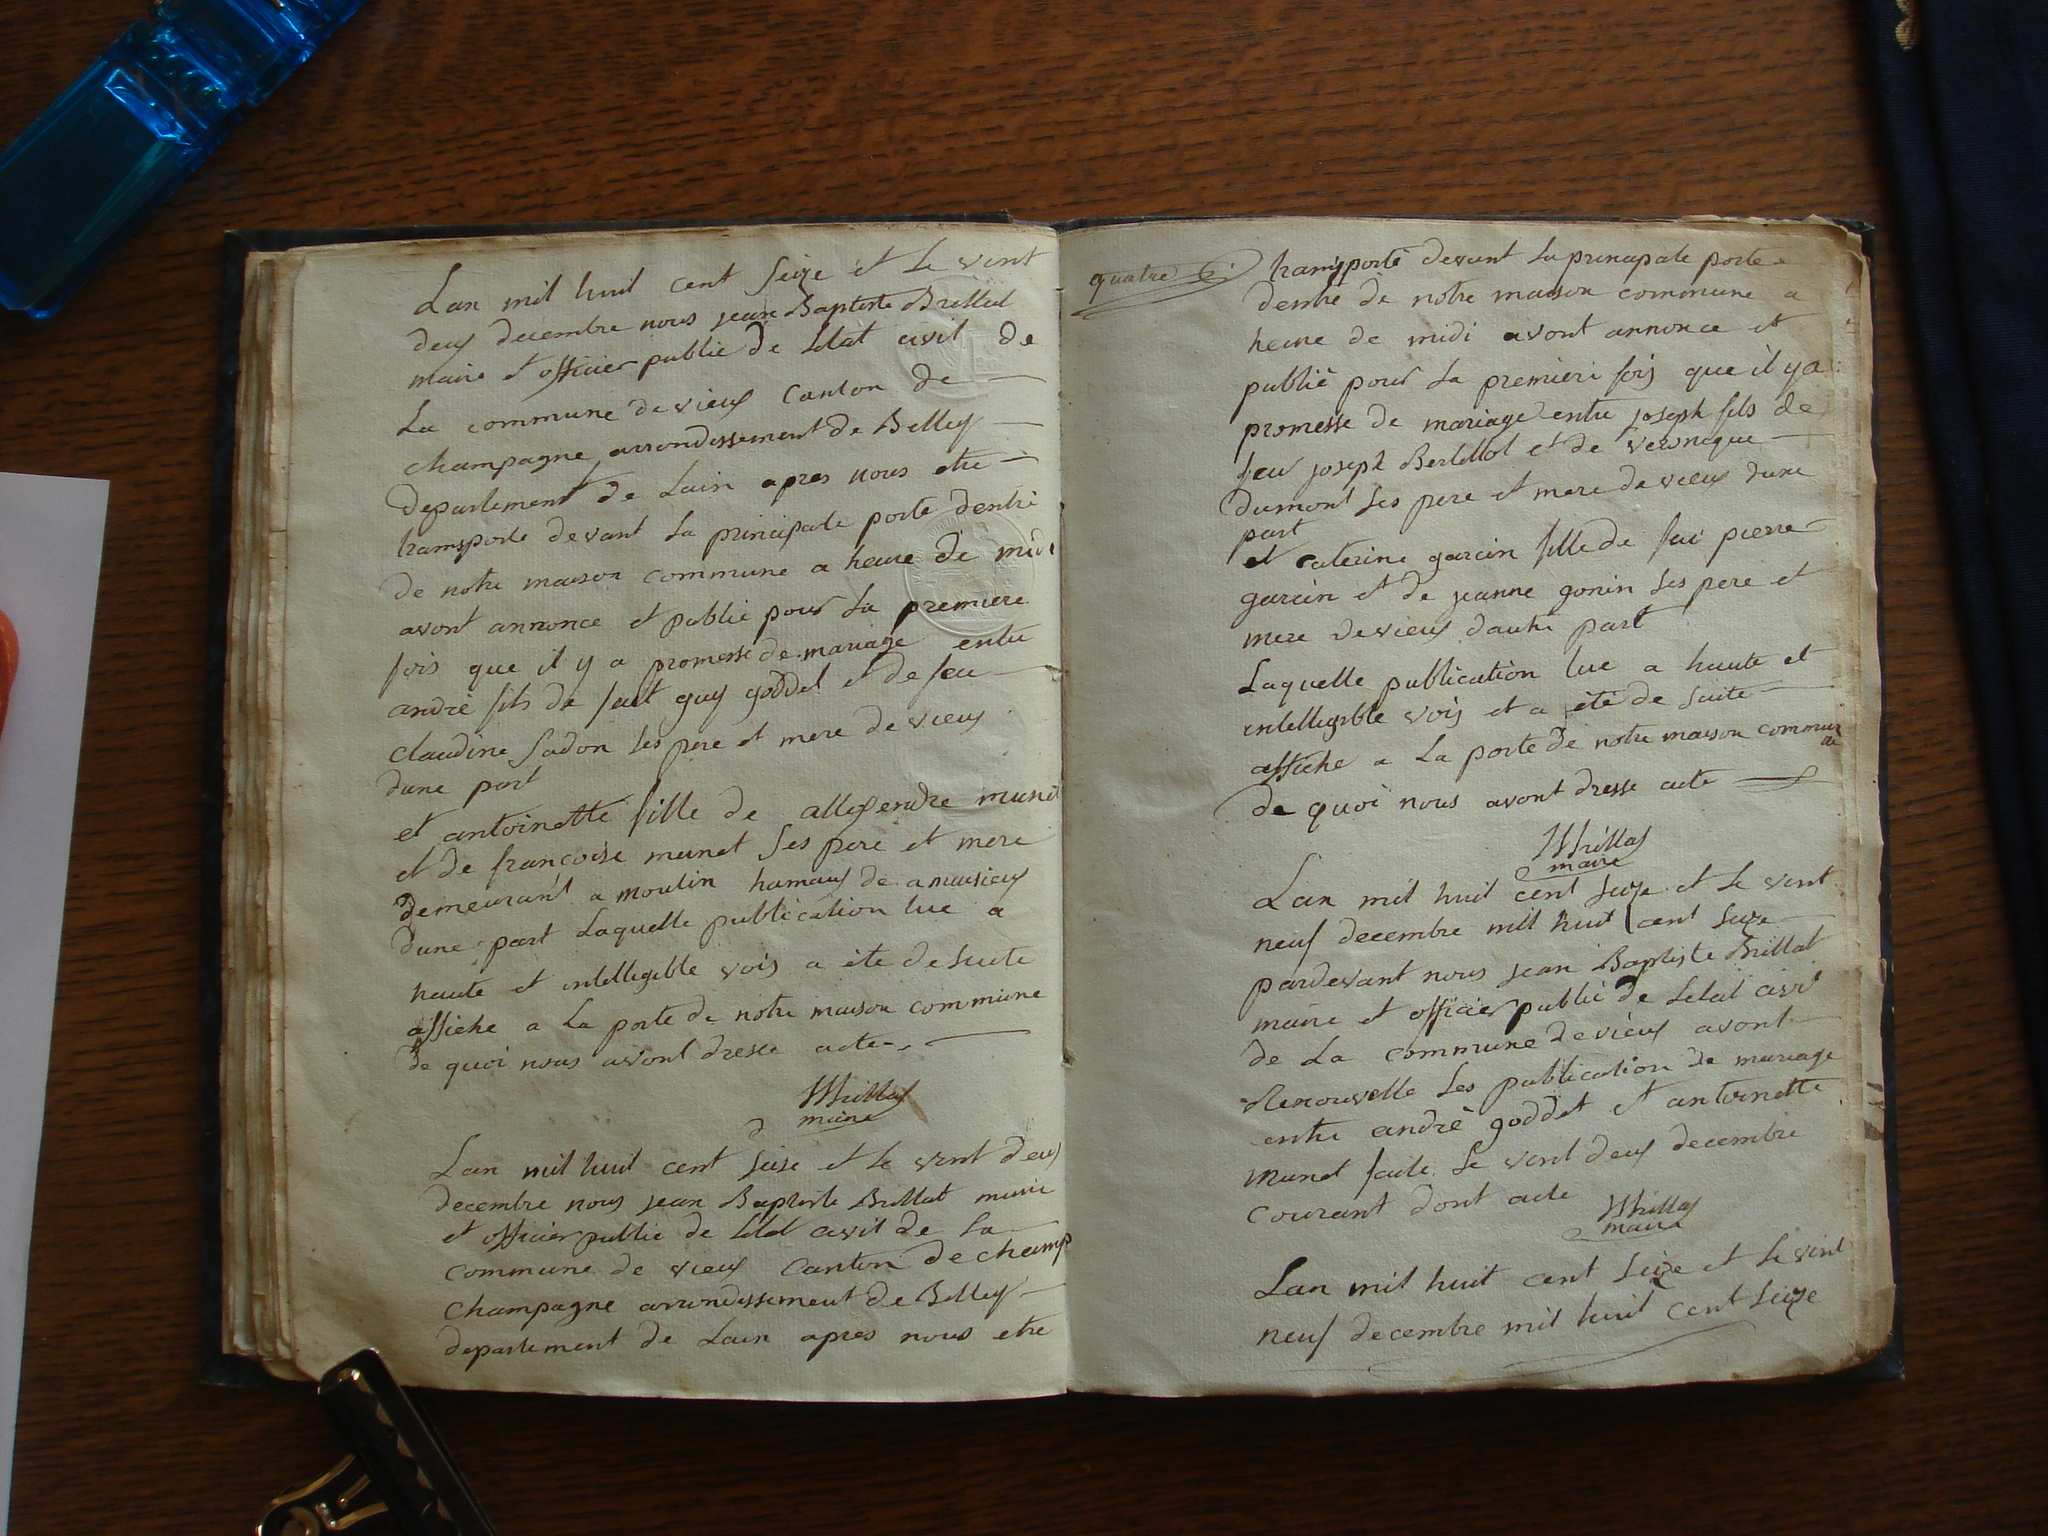 Lan mil huit cent seize et le vint
deux decembre nous jean Baptiste Brillat
maire et officier public de letat civil de
La commune de vieux Canton de
champagne arrondissement de Belley
departement de Lain apres nous etre
transporte devant La principale porte dentre
de notre maison commune a heure de midi
avont annonce et publie pour La premiere
fois que il y a promesse de mariage entre
andré fils de guy goddet et de feu
claudine Sadon ses pere et mere de vieux
dune part
et antoinette fille de allexendre munet
et de françoise munet ses pere et mere
demeurant a moulin hamaux de
dune part Laquelle publication lue a
haute et intelligible voix a été de suite
affiche a La porte de notre maison commune
de quoi nous avont dresse acte
Brillat
maire
Lan mil huit cent seise et le vint deux
decembre nous jean Baptiste Brillat maire
et officier public de letat civil de La
commune de vieux Canton de champ
champagne arrondissement de Belley
departement de Lain apres nous etre
quatre
transporté devant La principale porte
dentre de notre maison commune a
heure de midi avont annonce et
publié pour La premiere fois que il y a
promesse de mariage entre joseph fils de
feu joseph Berlillot et de veronique
dumont ses pere et mere de vieux dune
part
et caterine garcin fille de pierre
garcin et de jeanne gonin ses pere et
mere de vieux dautre part
Laquelle publication lue a haute et
intelligible voix et a été de suite
affiche a La porte de notre maison commune
de quoi nous avont dresse acte
Brillat
maire
Lan mil huit cent seize et le vint
neuf decembre mil huit cent seize
pardevant nous jean Baptiste Brillat
maire et officier public de letat civil
de La commune de vieux avont
Renouvelle Les publication de mariage
entre andré goddet et antoinette
munet faite Le vint deux decembre
courant dont acte
Brillat
maire
Lan mil huit cent seize et le vint
neuf decembre mil huit cent seize